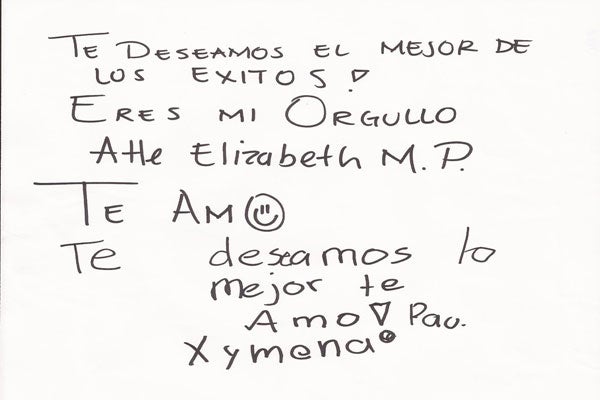 TE DESEAMOS EL MEJOR DE
LOS EXITOS!
ERES MI ORGULLO
Atte Elizabeth M.P.
TE AMO
Te deseamos lo
mejor te
Amo! Pao.
Xymena